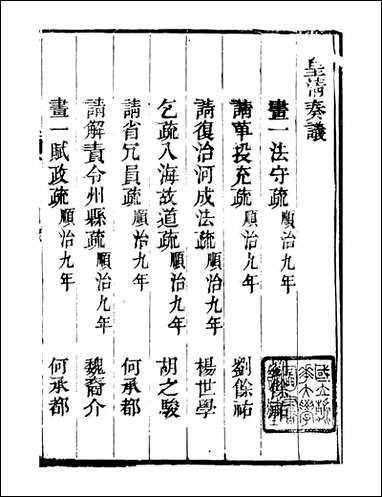 皇清奏議
畫一法守疏 順治九年 劉餘祐
請革投充疏 順治九年 劉餘祐
請復治河成法疏 順治九年 楊世學
乞疏入海故道疏 順治九年 胡之駿
請省冗員疏 順治九年 何承都
請解責令州縣疏 順治九年 魏裔介
畫一賦政疏 順治九年 何承都